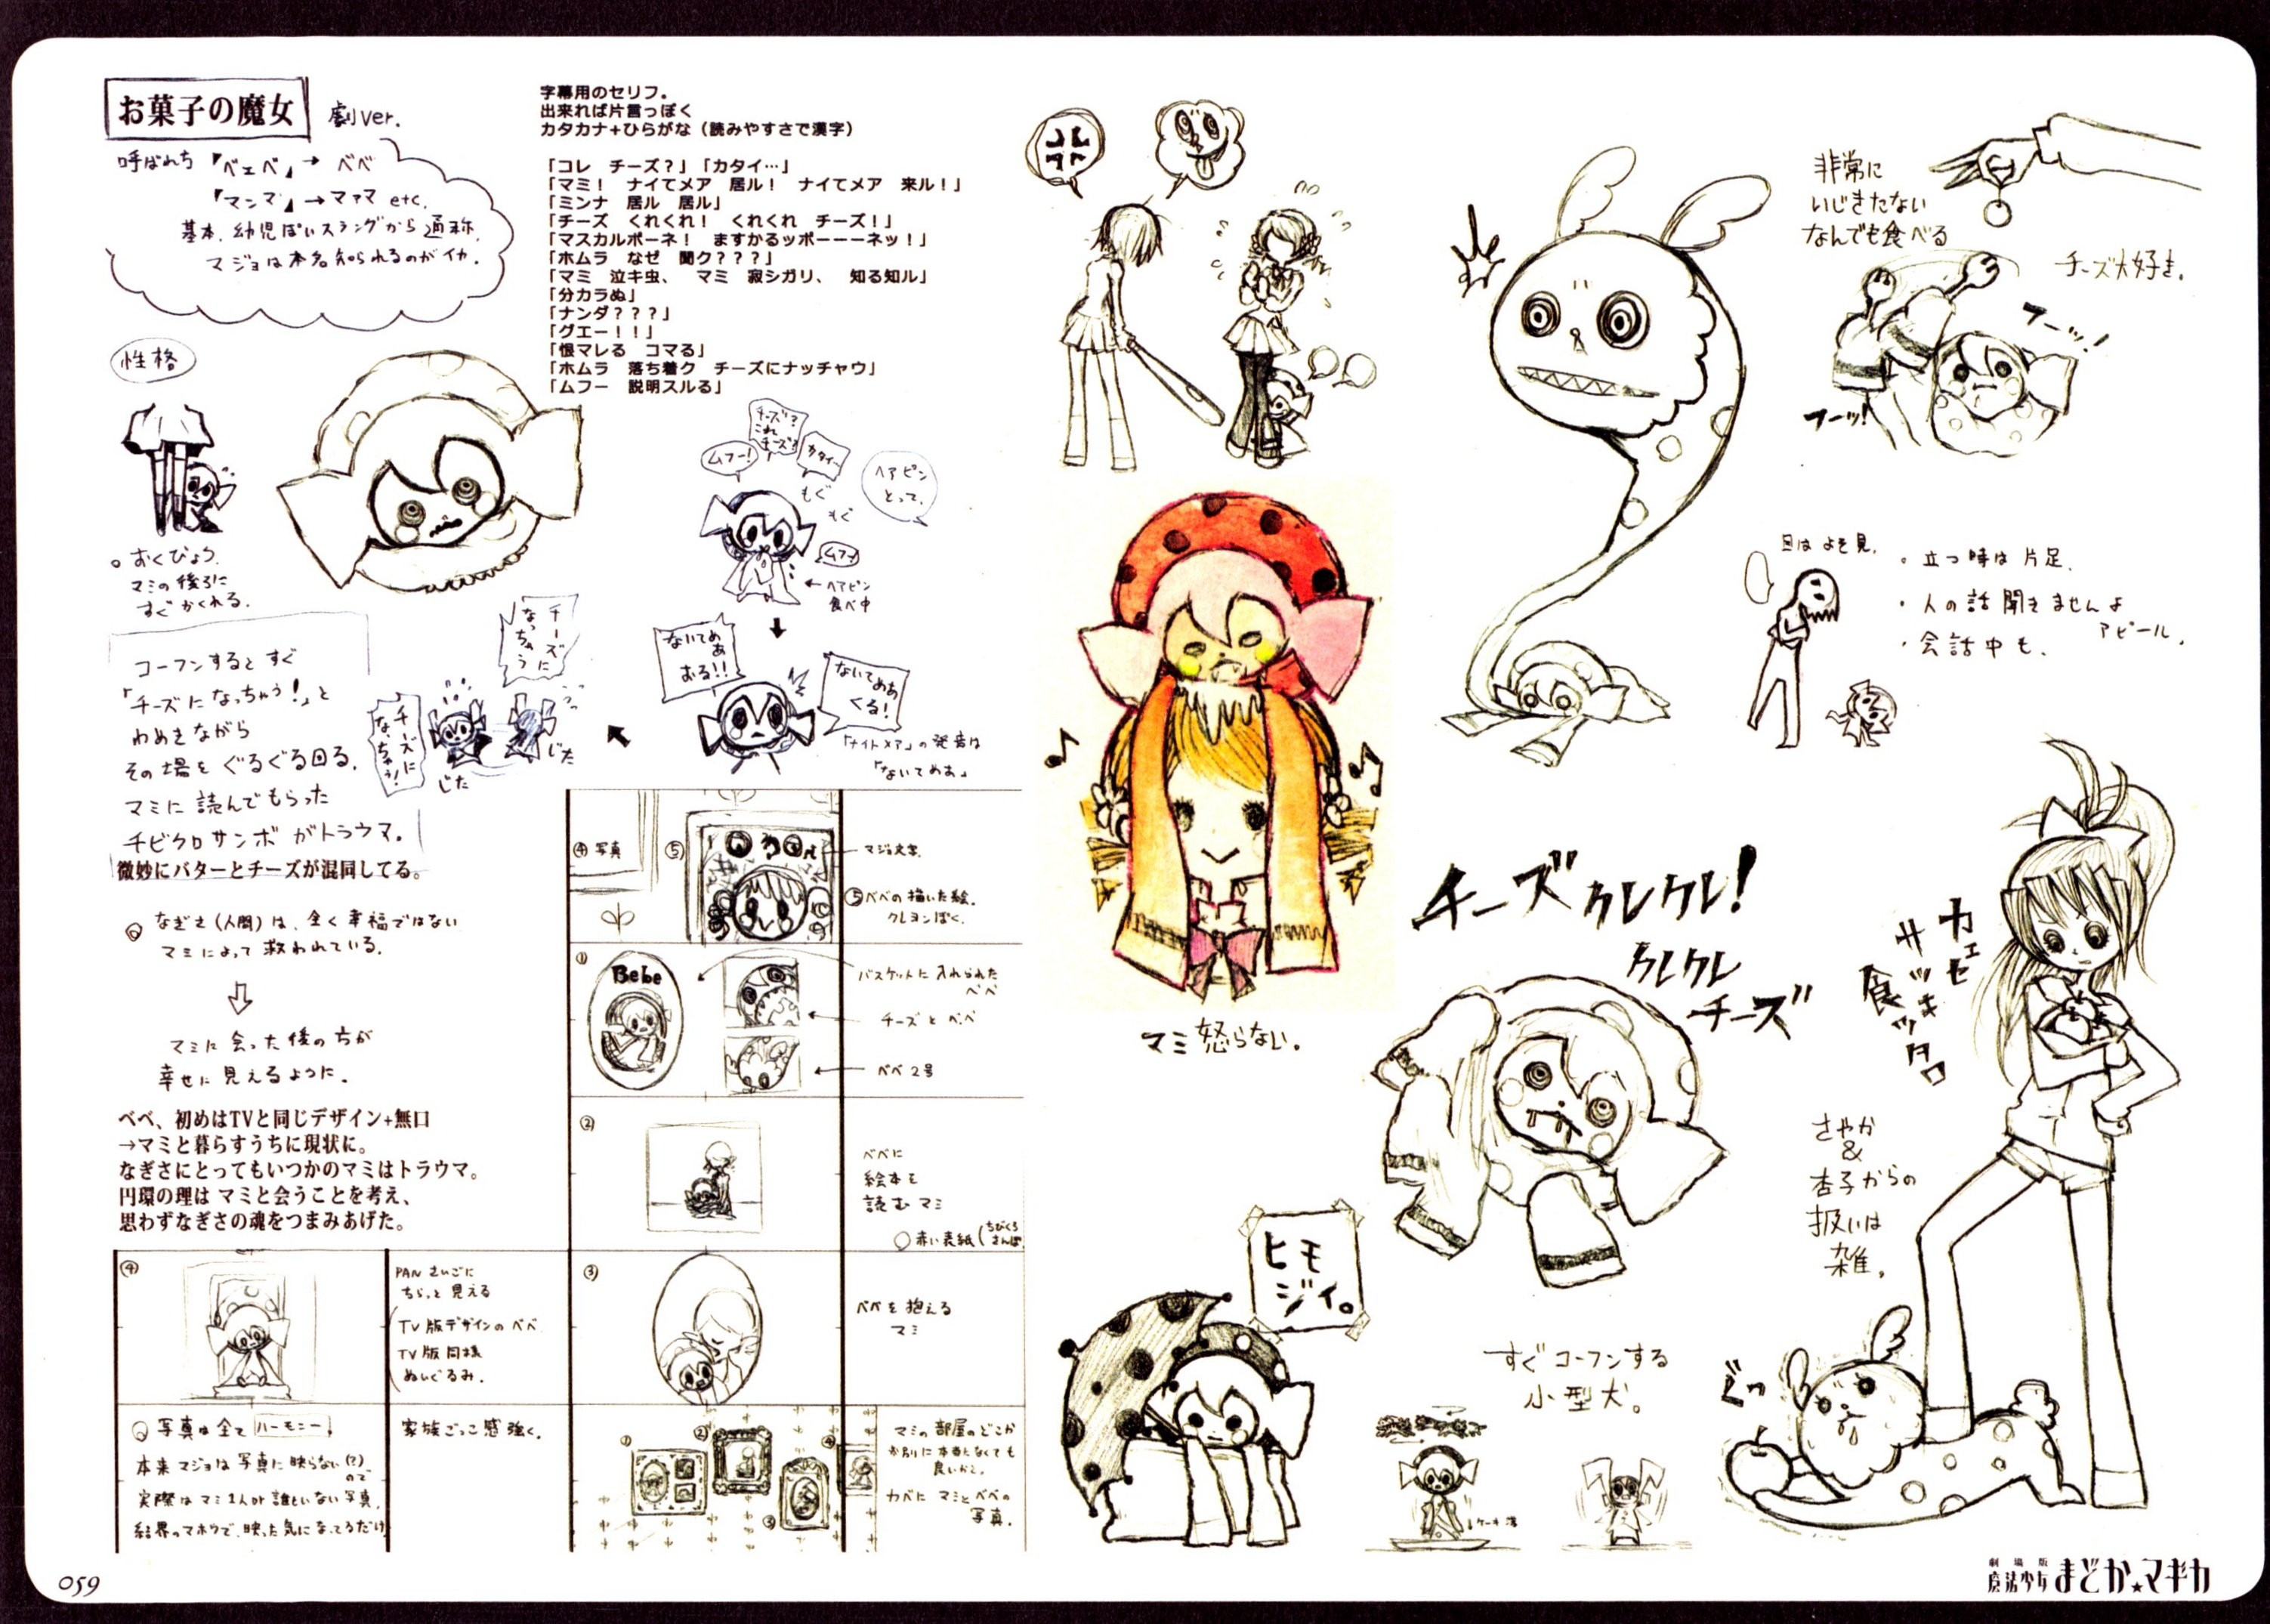 お菓子の魔女
劇ver.
呼ばれ方 『ベェベ』→ べべ
『マンマ』→ マァマ etc.
基本、幼児ぽいスラングから通称。
マジョは本名知られるのがイカ。
字幕用のセリフ。
出来れば片言っぽく
カタカナ+ひらがな（読みやすさで漢字）
「コレ　チーズ？」「カタイ…」
「マミ！　ナイてメア　居ル！　ナイてメア　来ル！」
「ミンナ　居ル　居ル」
「チーズ　くれくれ！　くれくれ　チーズ！」
「マスカルポーネ！　ますかるッポーーーネッ！」
「ホムラ　なぜ　聞ク？？？」
「マミ　泣キ虫、　マミ　寂シガリ、　知る知ル」
「分カラぬ」
「ナンダ？？？」
「グエー！！」
「恨マレる　コマる」
「ホムラ　落ち着ク　チーズにナッチャウ」
「ムフー　説明スルる」
性格
。おくびょう。
マミの後ろに
すぐかくれる。
コーフンするとすぐ
「チーズになっちゃう！」と
わめきながら
その場をぐるぐる回る。
マミに読んでもらった
チビクロサンボがトラウマ。
微妙にバターとチーズが混同してる。
チーズに
なっちゃう
チーズに
なっちゃう!
じた
じた
チーズ?
これ
チーズ?
ムフー!
カタイ…
もぐ
もぐ
ヘアピン
とって。
ムフー
←ヘアピン
食べ中
ないてめあ
おる!!
ないてめあ
くる!
「ナイトメア」の発音は
「ないてめあ」
◎なぎさ（人間）は、全く幸福ではない
マミによって救われている。
マミに会った後の方が
幸せに見えるように。
べべ、初めはTVと同じデザイン+無口
→マミと暮らすうちに現状に。
なぎさにとってもいつかのマミはトラウマ。
円環の理は マミと会うことを考え、
思わずなぎさの魂をつまみあげた。
④写真
⑤
マジョ文字。
⑤べべの描いた絵。
クレヨンぽく。
①
Bebe
バスケットに入れられた
べべ
チーズとべべ
べべ2号
②
べべに
絵本を
読むマミ
○赤い表紙(ちびくろ
さんぼ
③
べべを抱える
マミ
④
PAN さいごに
ちらっと見える
TV版デザインのべべ
TV版同様
ぬいぐるみ。
◎写真は全てハーモニー!
本来マジョは写真に映らない(?)
ので
実際はマミ1人か誰もいない写真。
結界のマホウで、映った気になってるだけ
家族ごっこ感強く。
①
②
③
④
マミの部屋のどこか
か別に本編でなくても
良いかと。
カベにマミとべべの
写真。
マミ怒らない。
非常に
いじきたない
なんでも食べる
チーズ大好き。
フーッ!
フーッ!
目はよそ見。
・立つ時は片足。
・人の話聞きませんよ
アピール。
・会話中も。
チーズクレクレ!
クレクレ
チーズ
カエセ
サッキ
食ッタロ
さやか
&
杏子からの
扱いは
雑。
ヒモ
ジイ。
すぐコーフンする
小型犬。
059
劇場版
魔法少女まどか★マギカ